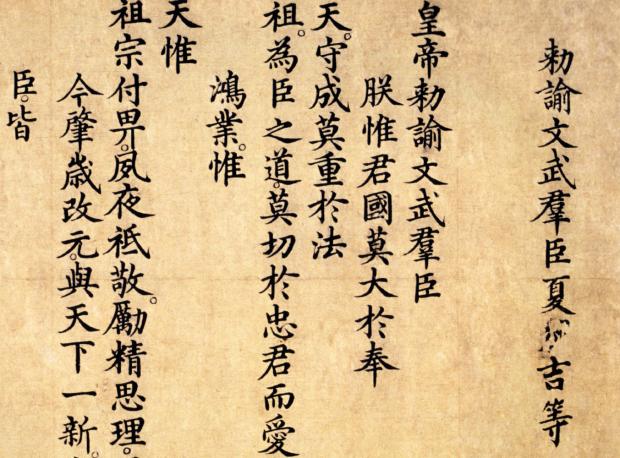 勅諭文武羣臣夏吉等
皇帝勅諭文武羣臣
朕惟君國莫大於奉
天。守成莫重於法
祖。為臣之道。莫切於忠君而愛
鴻業。惟
天惟
祖宗付畀。夙夜祗敬。勵精思理。
今肇歳改元。與天下一新。
臣。皆